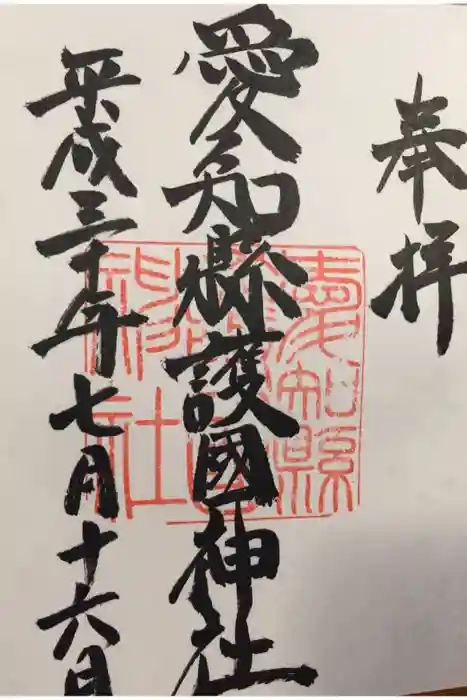 奉拝
愛知縣護國神社
平成三十年七月十六日
愛知縣
護國
神社